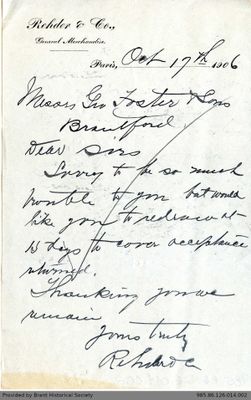 Rehder & Co.,
General Merchandise.
Paris, Oct 17th 1906
Messrs Geo Foster & Sons
Brantford.
Dear Sirs
Sorry to be so much
trouble to you but would
like you to redraw at
15 days to cover acceptance
returned.
Thanking you we
remain
Yours truly
Rehder & Co
Provided by Brant Historical Society
985.86.126.014.002